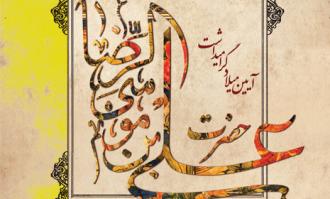 آیین گرامیداشت میلاد
حضرت
علی بن موسی الرضا